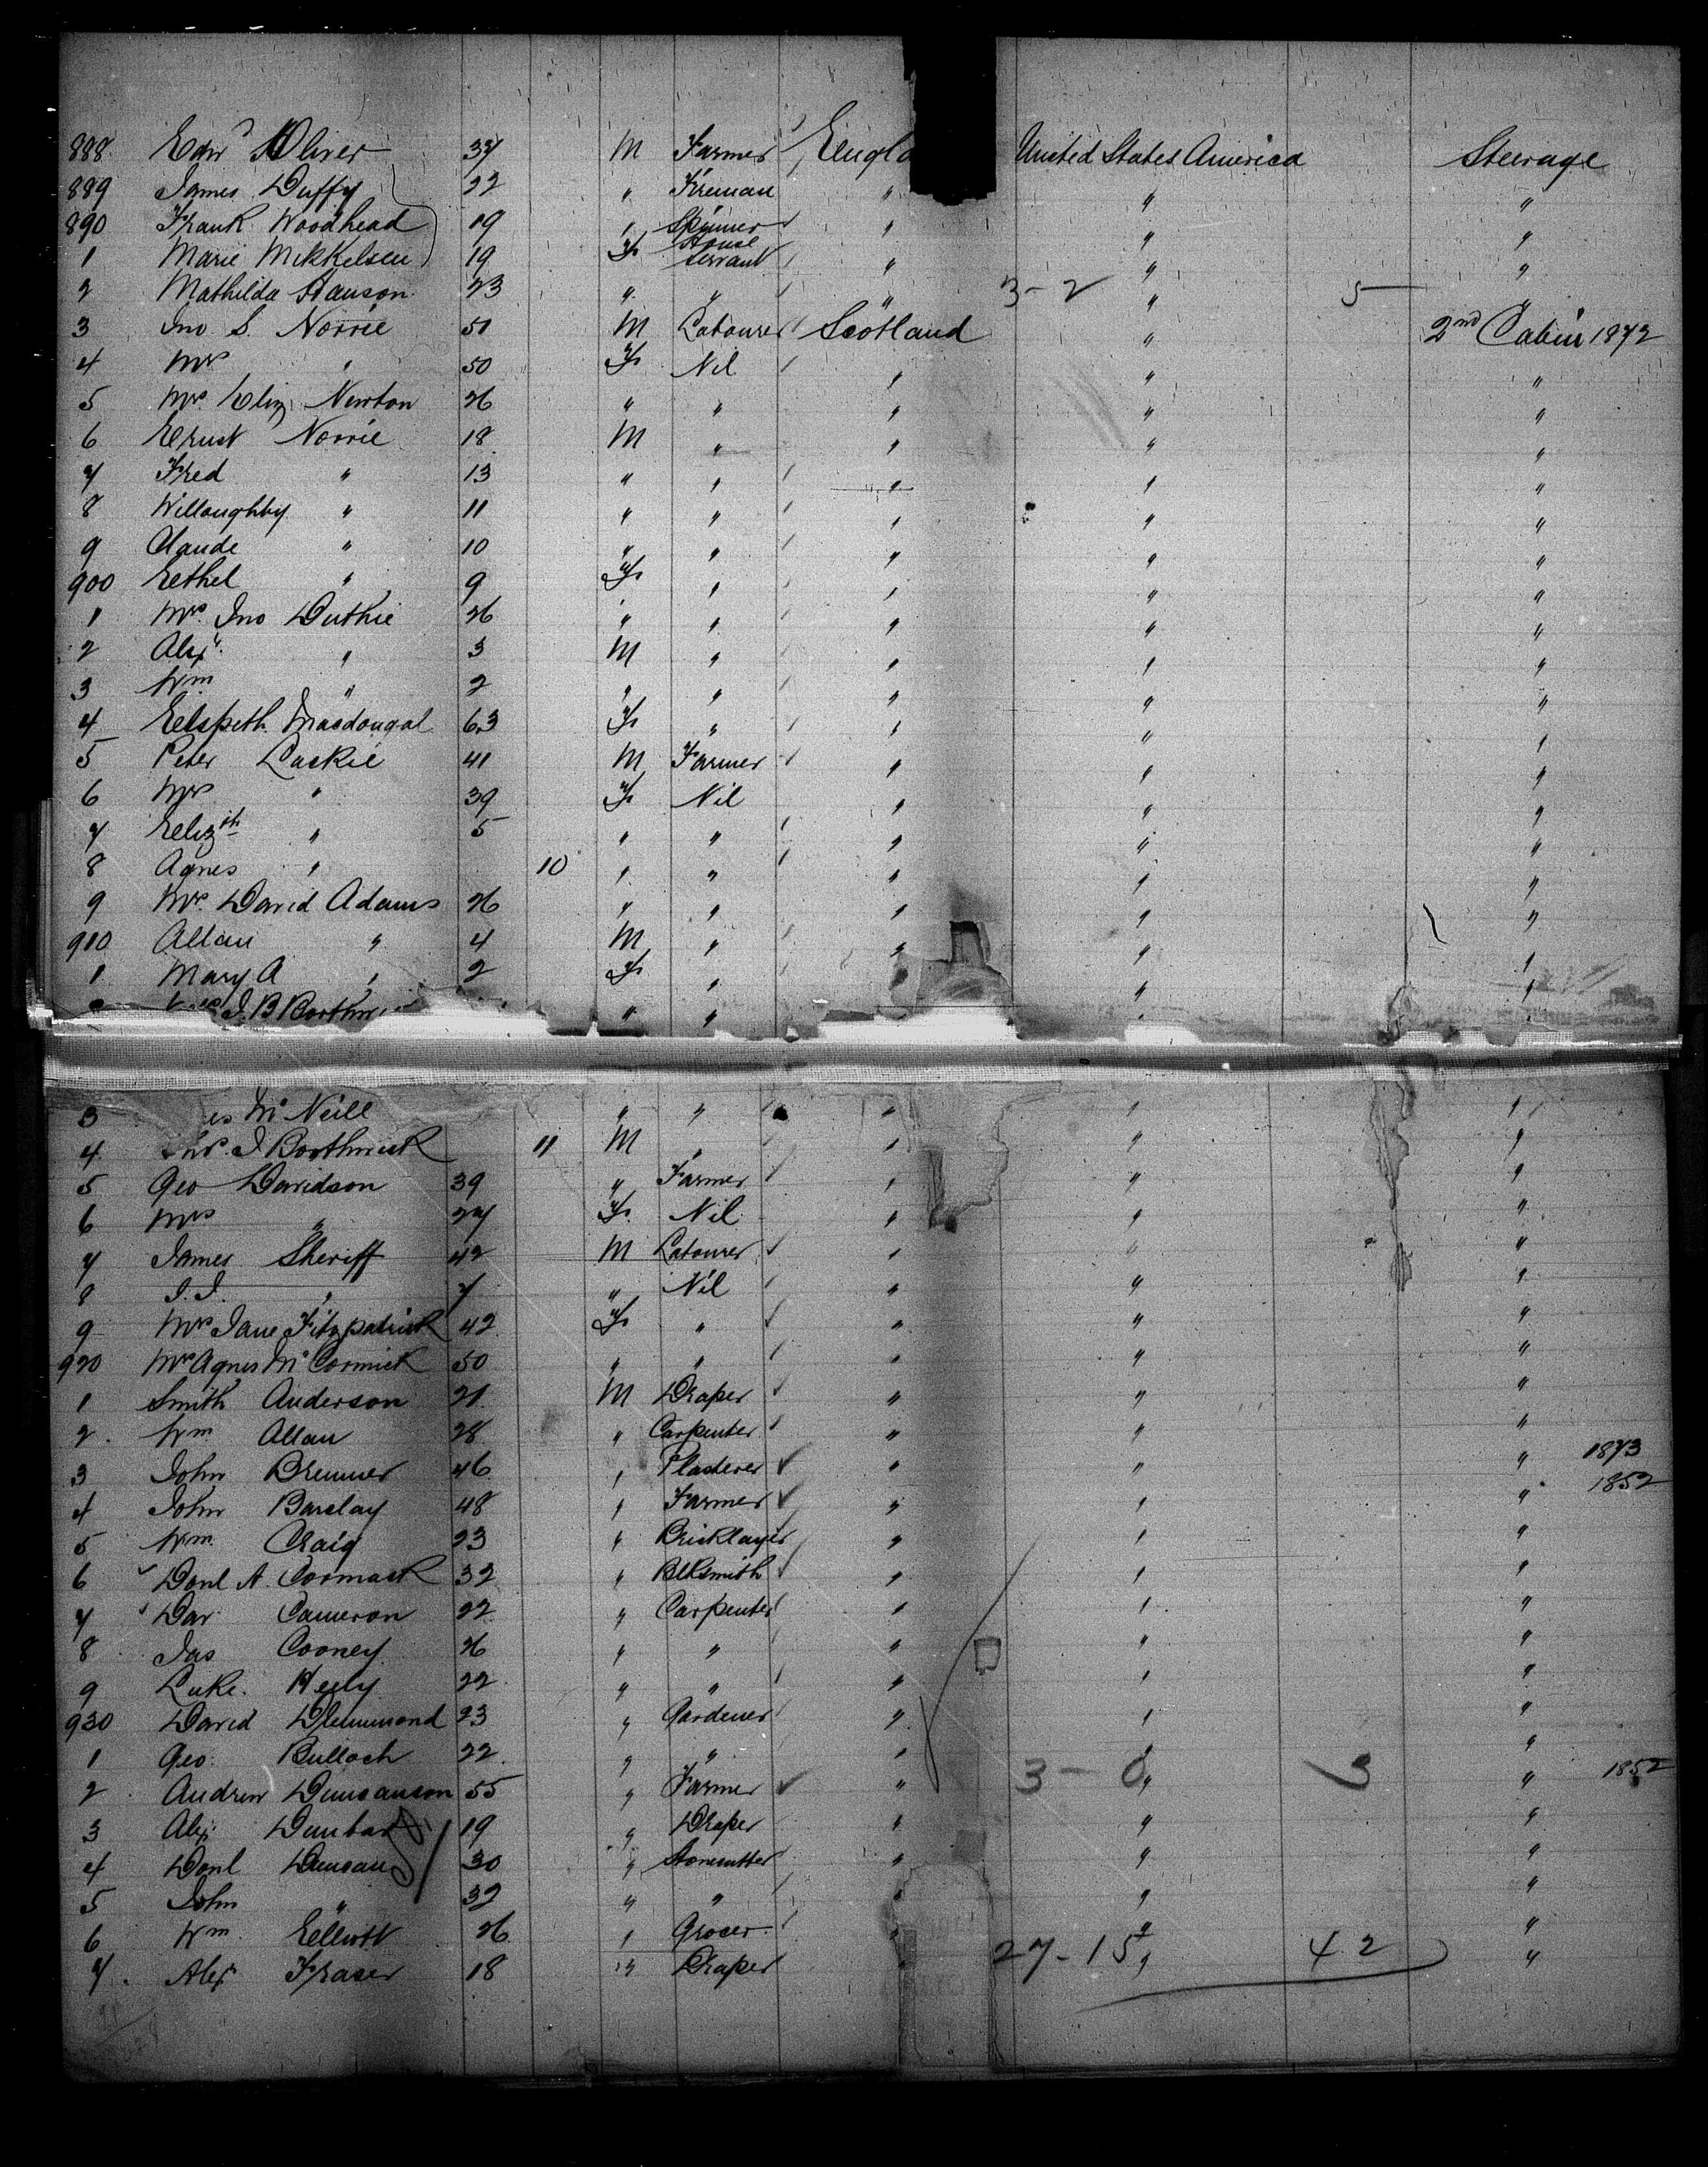 888 Edwd Oliver 37 M Farmer Engla United States America Steerage
889 James Duffy 22 " Fireman " " "
890 Frank Woodhead 19 " Spinner " " "
1 Marie Mikkelsen 19 F House servant " " "
2 Mathilda Hanson 23 " " " 3-2 " 5 "
3 Jno S. Norrie 51 M Labourer Scotland " 2nd Cabin 1872
4 Mrs " 50 F Nil " " "
5 Mrs Eliz Newton 26 " " " " "
6 Ernst Norrie 18 M " " " "
7 Fred " 13 " " " " "
8 Willoughby " 11 " " " " "
9 Claude " 10 " " " " "
900 Eethel " 9 F " " " "
1 Mrs Jno Duthie 26 " " " " "
2 Alexr " 3 M " " " "
3 Wm " 2 " " " " "
4 Eelspeth Macdougal 63 F " " " "
5 Peter Laskie 41 M Farmer " " "
6 Mrs " 39 F Nil " " "
7 Eelizth " 5 " " " " "
8 Agnes " 10 " " " " "
9 Mrs David Adams 26 " " " " "
910 Allan " 4 M " " " "
1 Mary A " 2 F " " " "
J. B Borthwi " " "
3 es McNeill " " " " "
4 J Borthwick 11 M " " " "
5 Geo Davidson 39 " Farmer " " "
6 Mrs " 27 F Nil " " "
7 James Sheriff 42 M Labourer " " "
8 J. J. " 7 " Nil " " "
9 Mrs Jane Fitzpatrick 42 F " " " "
920 Mrs Agnes McCormick 50 " " " " "
1 Smith Anderson 21 M Draper " " "
2 Wm Allan 28 " Carpenter " " "
3 John Bremner 46 " Plasterer " " " 1873
4 John Barclay 48 " Farmer " " " 1852
5 Wm Craig 23 " Bricklayer " " "
6 Donl A. Cormack 32 " Blksmith " " "
7 Dav Cameron 22 " Carpenter " " "
8 Jas Cooney 26 " " " " "
9 Luke Heely 22 " " " " "
930 David Drummond 23 " Gardener " " "
1 Geo Bulloch 22 " " " " "
2 Andrew Duncanson 55 " Farmer " 3-0 " 3 " 1852
3 Alex Dunbar 19 " Draper " " "
4 Donl Duncan 30 " Stonecutter " " "
5 John " 32 " " " " "
6 Wm Eelliott 26 " Grocer " " "
7 Alexr Fraser 18 " Draper 27-15 " 42 "